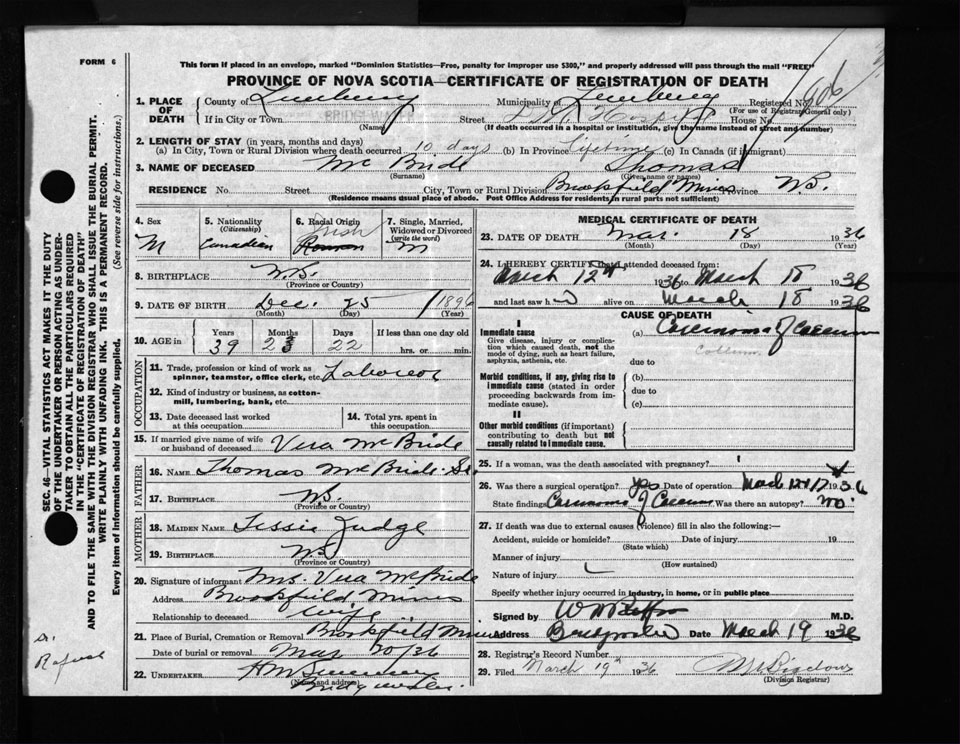 FORM 6
This form if placed in an envelope, marked "Dominion Statistics—Free, penalty for improper use $300," and properly addressed will pass through the mail "FREE"
PROVINCE OF NOVA SCOTIA—CERTIFICATE OF REGISTRATION OF DEATH
1. PLACE OF DEATH
County of Lunenburg Municipality of Lunenburg Registered No. 606
(For use of Registrar General only)
If in City or Town BRIDGEWATER Street Hospital House No.
(Name) (If death occurred in a hospital or institution, give the name instead of street and number)
2. LENGTH OF STAY (in years, months and days)
(a) In City, Town or Rural Division where death occurred 10 days (b) In Province Lifetime (c) In Canada (if immigrant)
3. NAME OF DECEASED Mc Bride Thomas
(Surname) (Given name or names)
RESIDENCE No. Street City, Town or Rural Division Brookfield Mines Province N.S.
(Residence means usual place of abode. Post Office Address for residents in rural parts not sufficient)
4. Sex
M
5. Nationality
(Citizenship)
Canadian
6. Racial Origin
Irish
7. Single, Married, Widowed or Divorced
(write the word)
M
8. BIRTHPLACE N.S.
(Province or Country)
9. DATE OF BIRTH Dec. 25 1896
(Month) (Day) (Year)
10. AGE in
Years Months Days If less than one day old
39 2 22 hrs. or min.
OCCUPATION
11. Trade, profession or kind of work as spinner, teamster, office clerk, etc. Laborer
12. Kind of industry or business, as cotton-mill, lumbering, bank, etc.
13. Date deceased last worked at this occupation
14. Total yrs. spent in this occupation
15. If married give name of wife or husband of deceased Vera McBride
FATHER
16. NAME Thomas McBride Sr.
17. BIRTHPLACE N.S.
(Province or Country)
MOTHER
18. MAIDEN NAME Tessie Judge
19. BIRTHPLACE N.S.
(Province or Country)
20. Signature of informant Mrs. Vera McBride
Address Brookfield Mines
Relationship to deceased wife
21. Place of Burial, Cremation or Removal Brookfield Mines
Date of burial or removal Mar 20/36
22. UNDERTAKER
(Name and address)
Bridgewater.
MEDICAL CERTIFICATE OF DEATH
23. DATE OF DEATH Mar. 18 1936
(Month) (Day) (Year)
24. I HEREBY CERTIFY that I attended deceased from:
March 12th 1936 to March 18 1936
and last saw h alive on March 18 1936
CAUSE OF DEATH
I
Immediate cause
Give disease, injury or complication which caused death, not the mode of dying, such as heart failure, asphyxia, asthenia, etc.
(a) Carcinoma of Caecum
due to
Morbid conditions, if any, giving rise to immediate cause (stated in order proceeding backwards from immediate cause).
(b)
due to
(c)
II
Other morbid conditions (if important) contributing to death but not causally related to immediate cause.
25. If a woman, was the death associated with pregnancy?
26. Was there a surgical operation? yes Date of operation March 12+17 1936
State findings Carcinoma of Caecum Was there an autopsy? no.
27. If death was due to external causes (violence) fill in also the following:—
Accident, suicide or homicide? Date of injury 19
(State which)
Manner of injury
(How sustained)
Nature of injury
Specify whether injury occurred in industry, in home, or in public place
Signed by M.D.
Address Bridgewater Date March 19 1936
28. Registrar's Record Number
29. Filed March 19th 1936
(Division Registrar)
SEC. 46—VITAL STATISTICS ACT MAKES IT THE DUTY OF THE UNDERTAKER OR PERSON ACTING AS UNDERTAKER TO OBTAIN ALL THE PARTICULARS REQUIRED IN THE "CERTIFICATE OF REGISTRATION OF DEATH"
AND TO FILE THE SAME WITH THE DIVISION REGISTRAR WHO SHALL ISSUE THE BURIAL PERMIT.
WRITE PLAINLY WITH UNFADING INK. THIS IS A PERMANENT RECORD.
Every item of information should be carefully supplied. (See reverse side for instructions.)